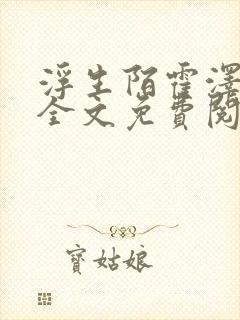 浮生陌霍澤
全文免費閱
寶姑娘